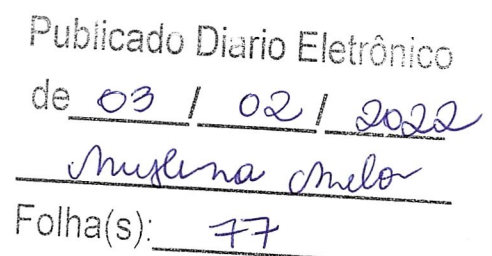 Publicado Diario Eletrônico
de 03 / 02 / 2022
Melo
Folha(s): 77